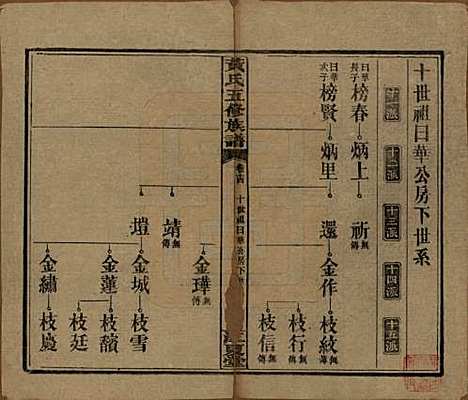 十世祖日華公房下世系
十一派
十二派
十三派
十四派
十五派
日華長子
榜春
炳上
祈
無傳
日華次子
榜賢
炳里
還
金作
枝紋
無傳
枝行
無傳
枝信
無傳
黃氏五修族譜
卷十四
十世祖日華公房下
江夏堂
金瑋
無傳
靖
無傳
塏
金城
枝雪
金蓮
枝馥
枝廷
金繡
枝慶